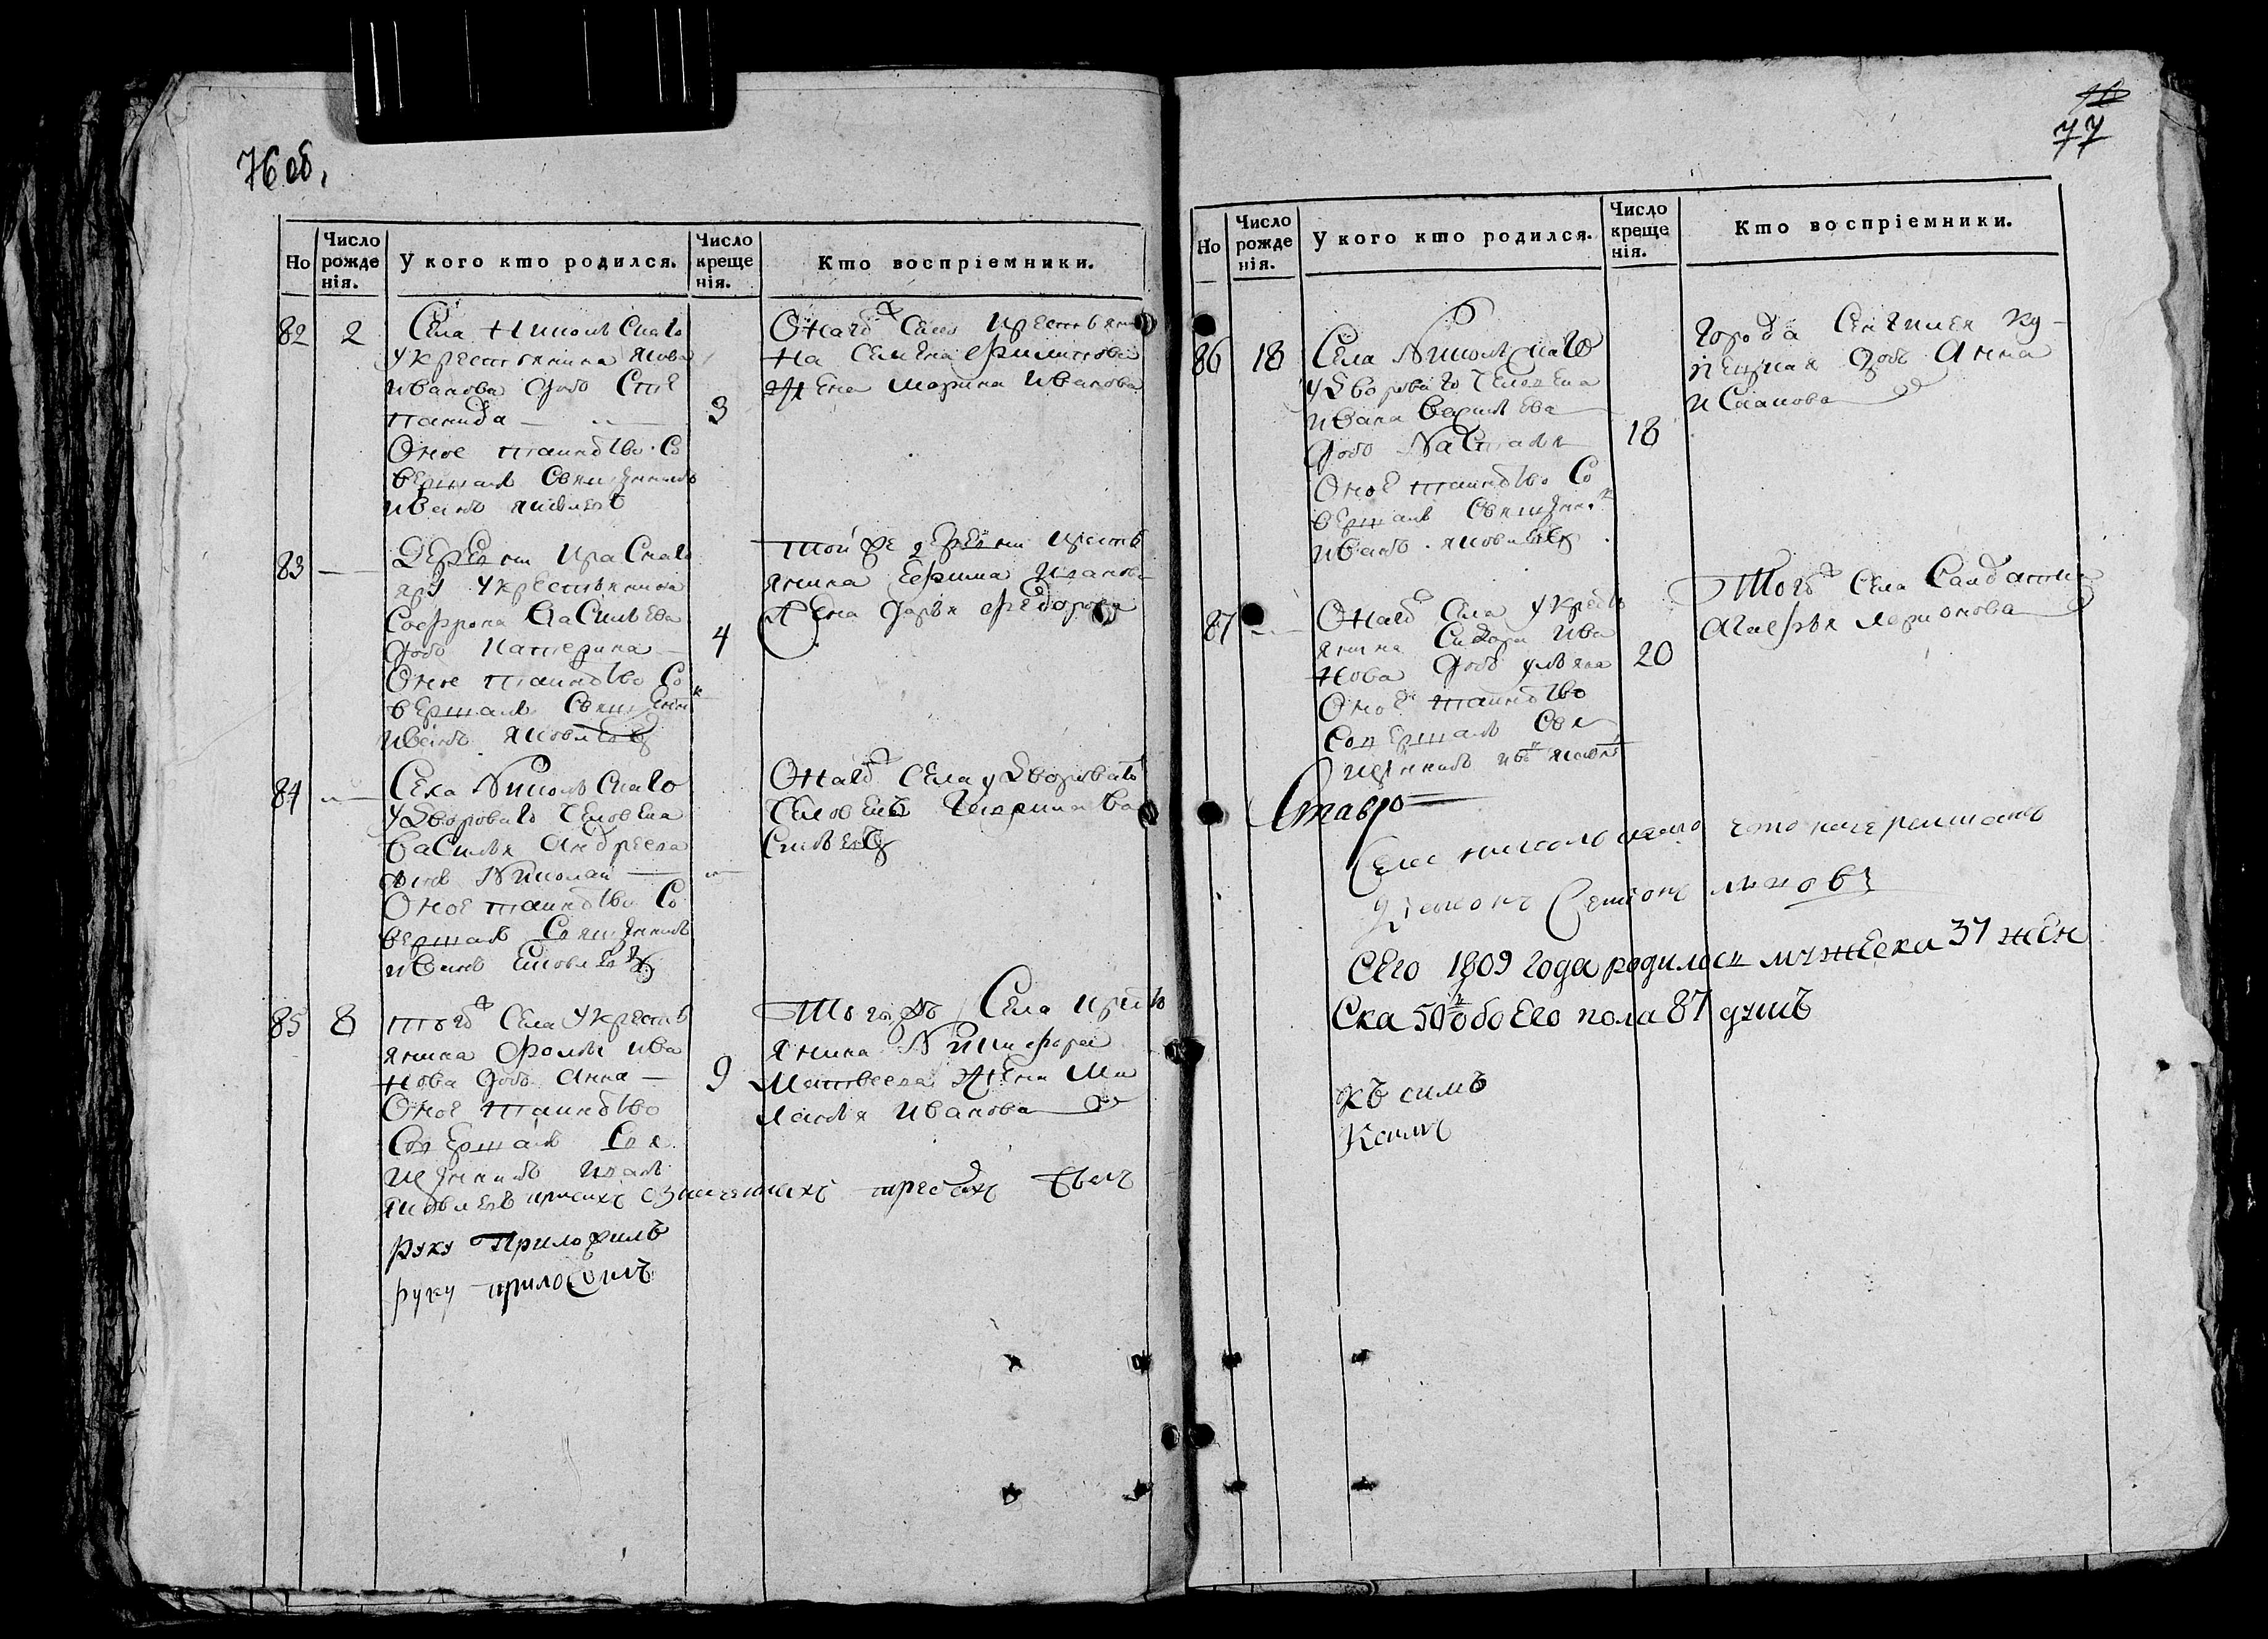 76 об,
Но
Число рожде нія.
У кого кто родился.
Число креще нія.
Кто воспріемники.
82 2 Села Никольскаго
у крестьянина Якова
Иванова дочь Сте
панида
3
Оное таинство со
вершалъ священникъ
Иванъ Яковлевъ
Онагожъ села крестьяни
на Семена Филипова
жена Марина Иванова
83 — Деревни Краснаго
яру у крестьянина
Софрона Васильева
дочь Катерина
4
Оное таинство со
вершалъ священник
Иванъ Яковлевъ
той же деревни кресть
янина Ефима Иванова
жена Дарья Федорова
84 — Села Никольскаго
у двороваго человека
Василья Андреева
сынъ Николай —
Оное таинство со
вершалъ священникъ
Иванъ Яковлевъ
Онагожъ села у дворовагъ
человекъ
85 8 тогожъ села у кресть
янина Фомы Ива
нова дочь Анна —
9
Оное таинство
совершалъ свя
щенникъ Иванъ
Яковлевъ
руку приложилъ
руку приложилъ
Того жъ села кресть
янина Никифора
Матвеева жена Ма
ланья Иванова
77
Но
Число рожде нія.
У кого кто родился.
Число креще нія.
Кто воспріемники.
86 18 Села Никольскаго
у двороваго человека
Ивана Васильева
дочь Наталья
18
Оное таинство со
вершалъ священник
Иванъ Яковлевъ
города Сенгилея ку-
пецкая дочь Анна
87 — Онагожъ села у кресть
янина Сидора Ива
нова дочь Ульяна
20
Оное таинство
совершалъ свя
щенникъ
Тогожъ села салдатка
Агафья Ларионова
Села Никольскаго
Сего 1809 года родилось мужеска 37 жен
ска 50 обоего пола 87 душъ
къ симъ